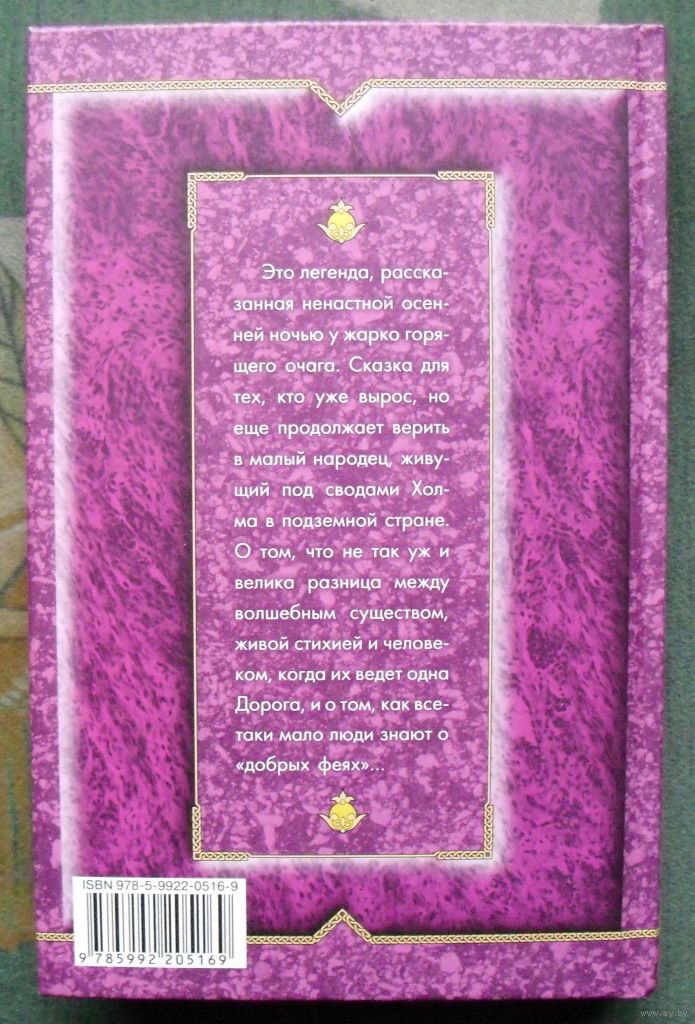 Это легенда, расска-
занная ненастной осен-
ней ночью у жарко горя-
щего очага. Сказка для
тех, кто уже вырос, но
еще продолжает верить
в малый народец, живу-
щий под сводами Хол-
ма в подземной стране.
О том, что не так уж и
велика разница между
волшебным существом,
живой стихией и челове-
ком, когда их ведет одна
Дорога, и о том, как все-
таки мало люди знают о
«добрых феях»...
ISBN 978-5-9922-0516-9
9 785992 205169
www.ay.by